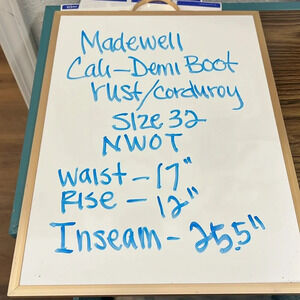 Madewell
Cali-Demi Boot
rust/corduroy
Size 32
NWOT
Waist - 17"
Rise - 12"
Inseam - 25.5"